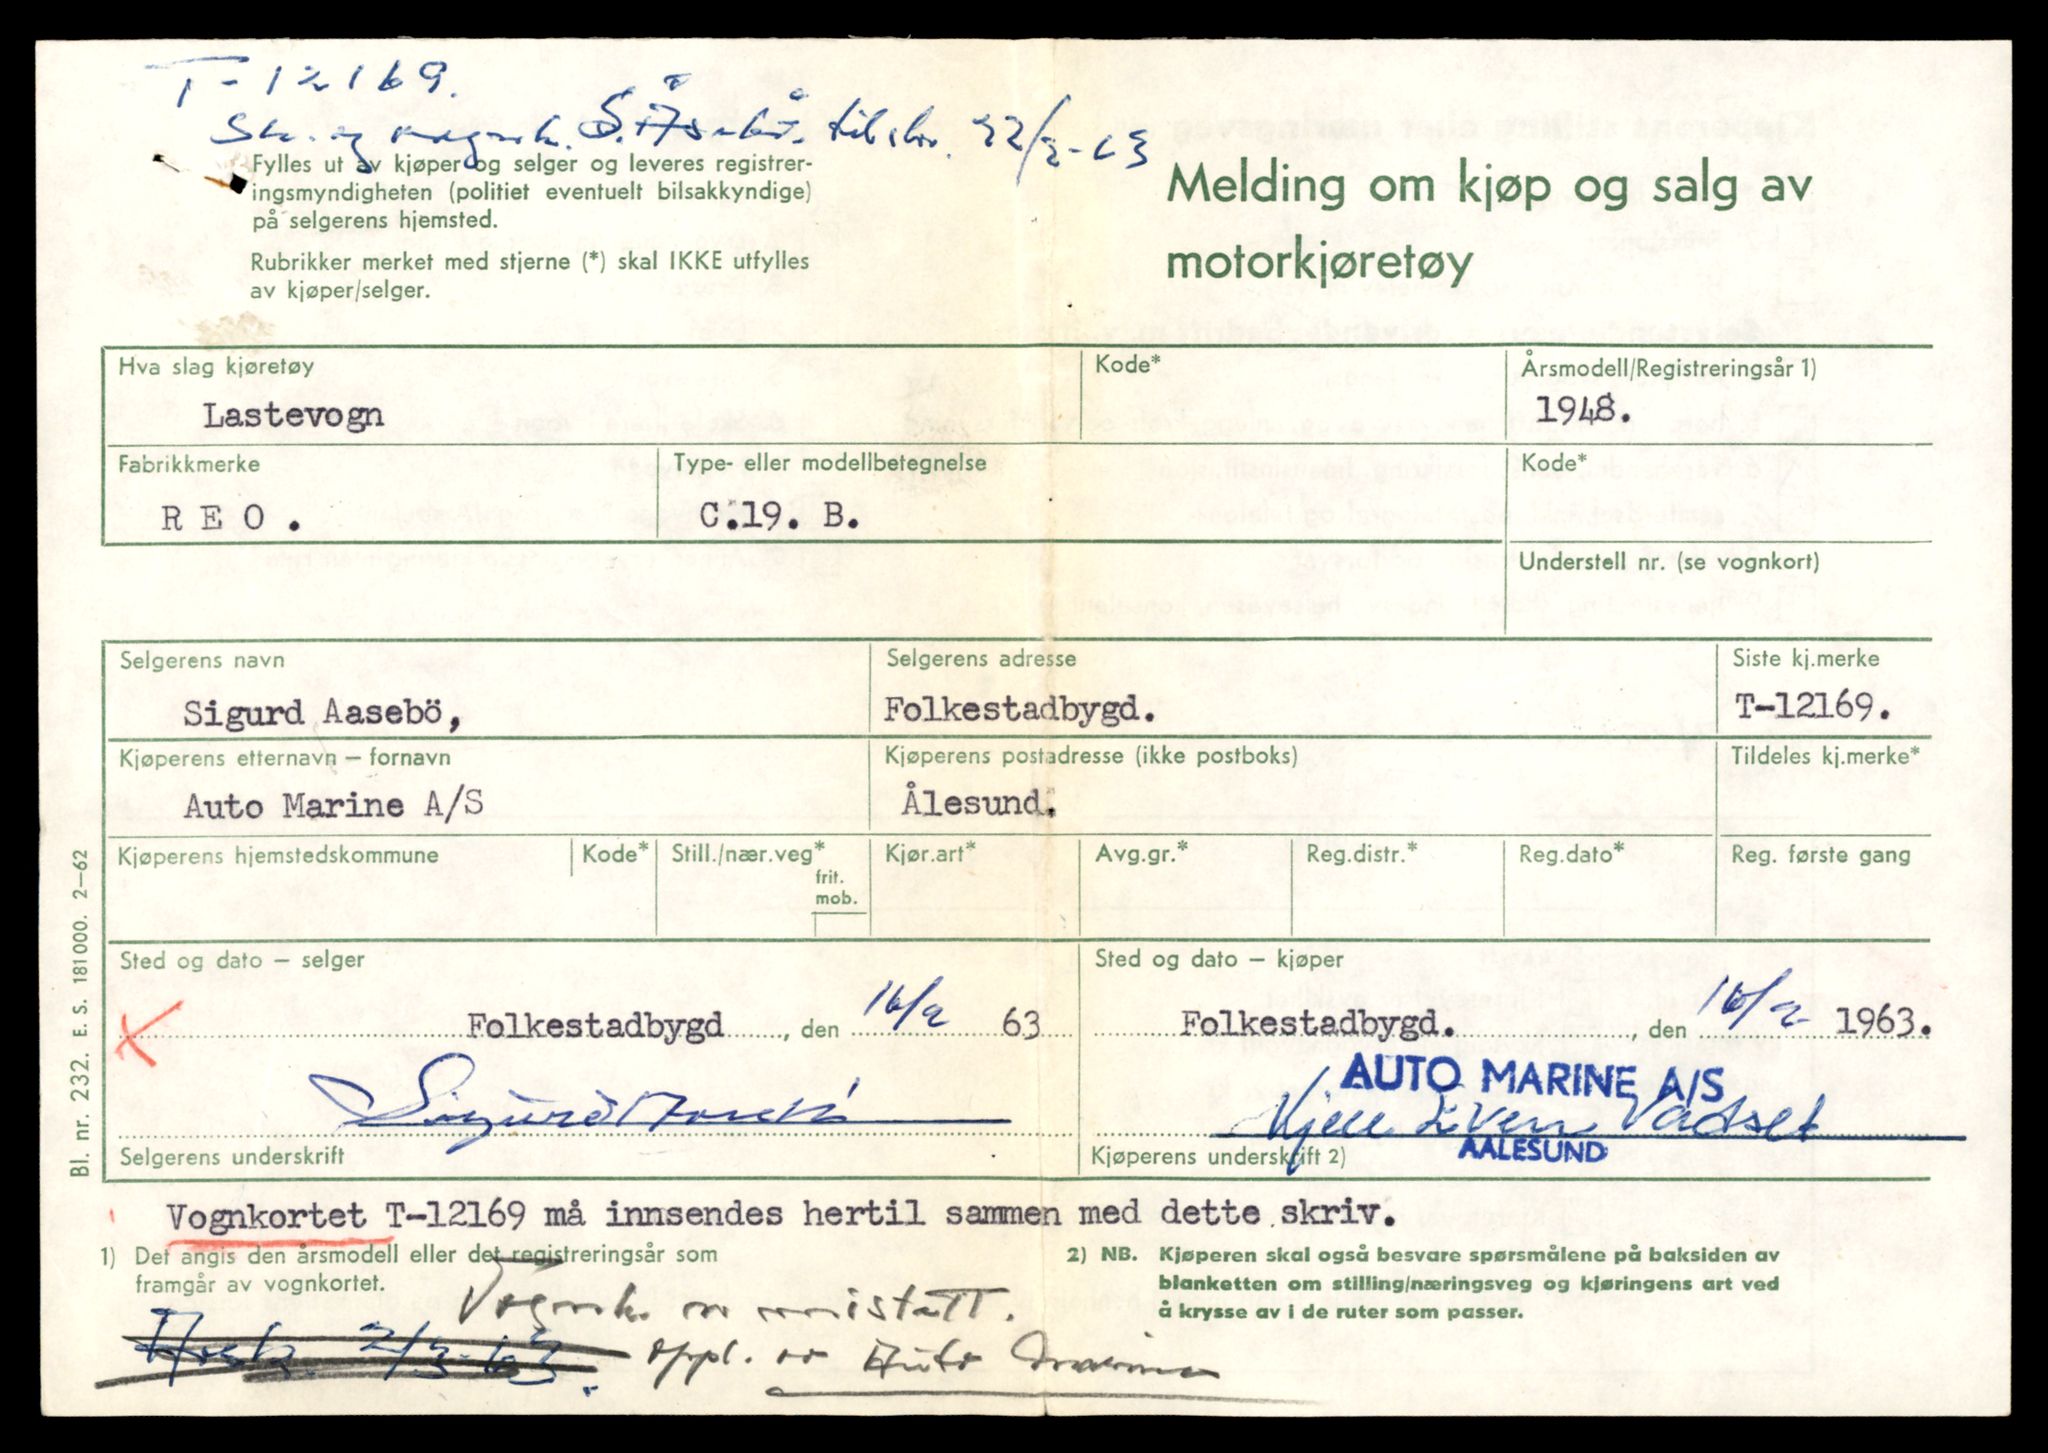 T-12169.
Sk. og vognk. S. Åsebø tilskr. 22/2-63
Fylles ut av kjøper og selger og leveres registrer-
ingsmyndigheten (politiet eventuelt bilsakkyndige)
på selgerens hjemsted.
Rubrikker merket med stjerne (*) skal IKKE utfylles
av kjøper/selger.
Melding om kjøp og salg av
motorkjøretøy
Hva slag kjøretøy Kode* Årsmodell/Registreringsår 1)
Lastevogn 1948.
Fabrikkmerke Type- eller modellbetegnelse Kode*
R E O . C.19. B.
Understell nr. (se vognkort)
Selgerens navn Selgerens adresse Siste kj.merke
Sigurd Aasebö, Folkestadbygd. T-12169.
Kjøperens etternavn – fornavn Kjøperens postadresse (ikke postboks) Tildeles kj.merke*
Auto Marine A/S Ålesund.
Kjøperens hjemstedskommune Kode* Still./nær.veg* Kjør.art* Avg.gr.* Reg.distr.* Reg.dato* Reg. første gang
frit.
mob.
Sted og dato – selger Sted og dato – kjøper
Folkestadbygd, den 16/2 63 Folkestadbygd. , den 16/2 1963.
AUTO MARINE A/S
Sigurd Aasebö Kjell Iven Vadset
AALESUND
Selgerens underskrift Kjøperens underskrift 2)
Vognkortet T-12169 må innsendes hertil sammen med dette skriv.
1) Det angis den årsmodell eller det registreringsår som
framgår av vognkortet.
2) NB. Kjøperen skal også besvare spørsmålene på baksiden av
blanketten om stilling/næringsveg og kjøringens art ved
å krysse av i de ruter som passer.
Vognk. er mistett.
2/3-63. oppl. av Auto Marine
Bl. nr. 232. E. S. 181000. 2–62